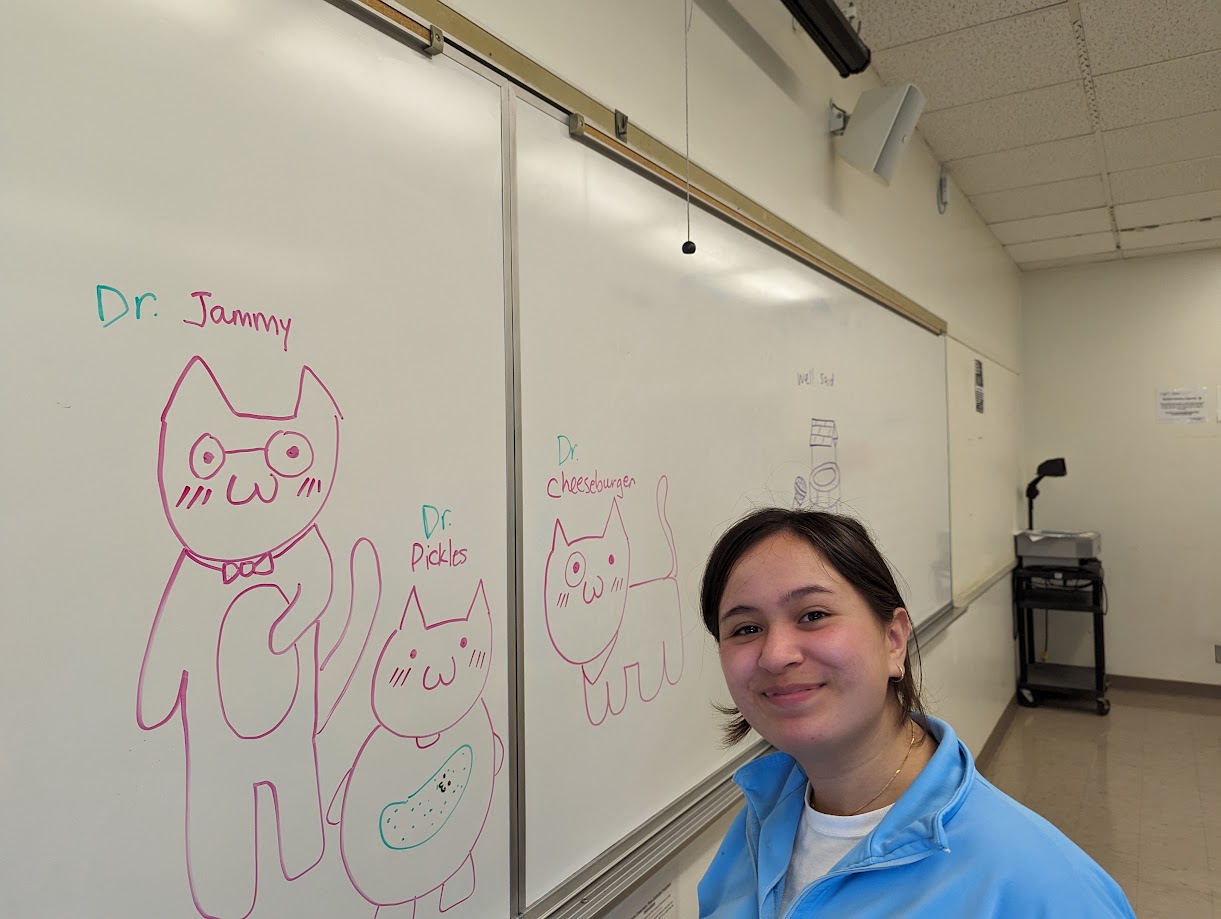 Dr. Jammy
Dr.
Pickles
Dr.
cheeseburger
well said